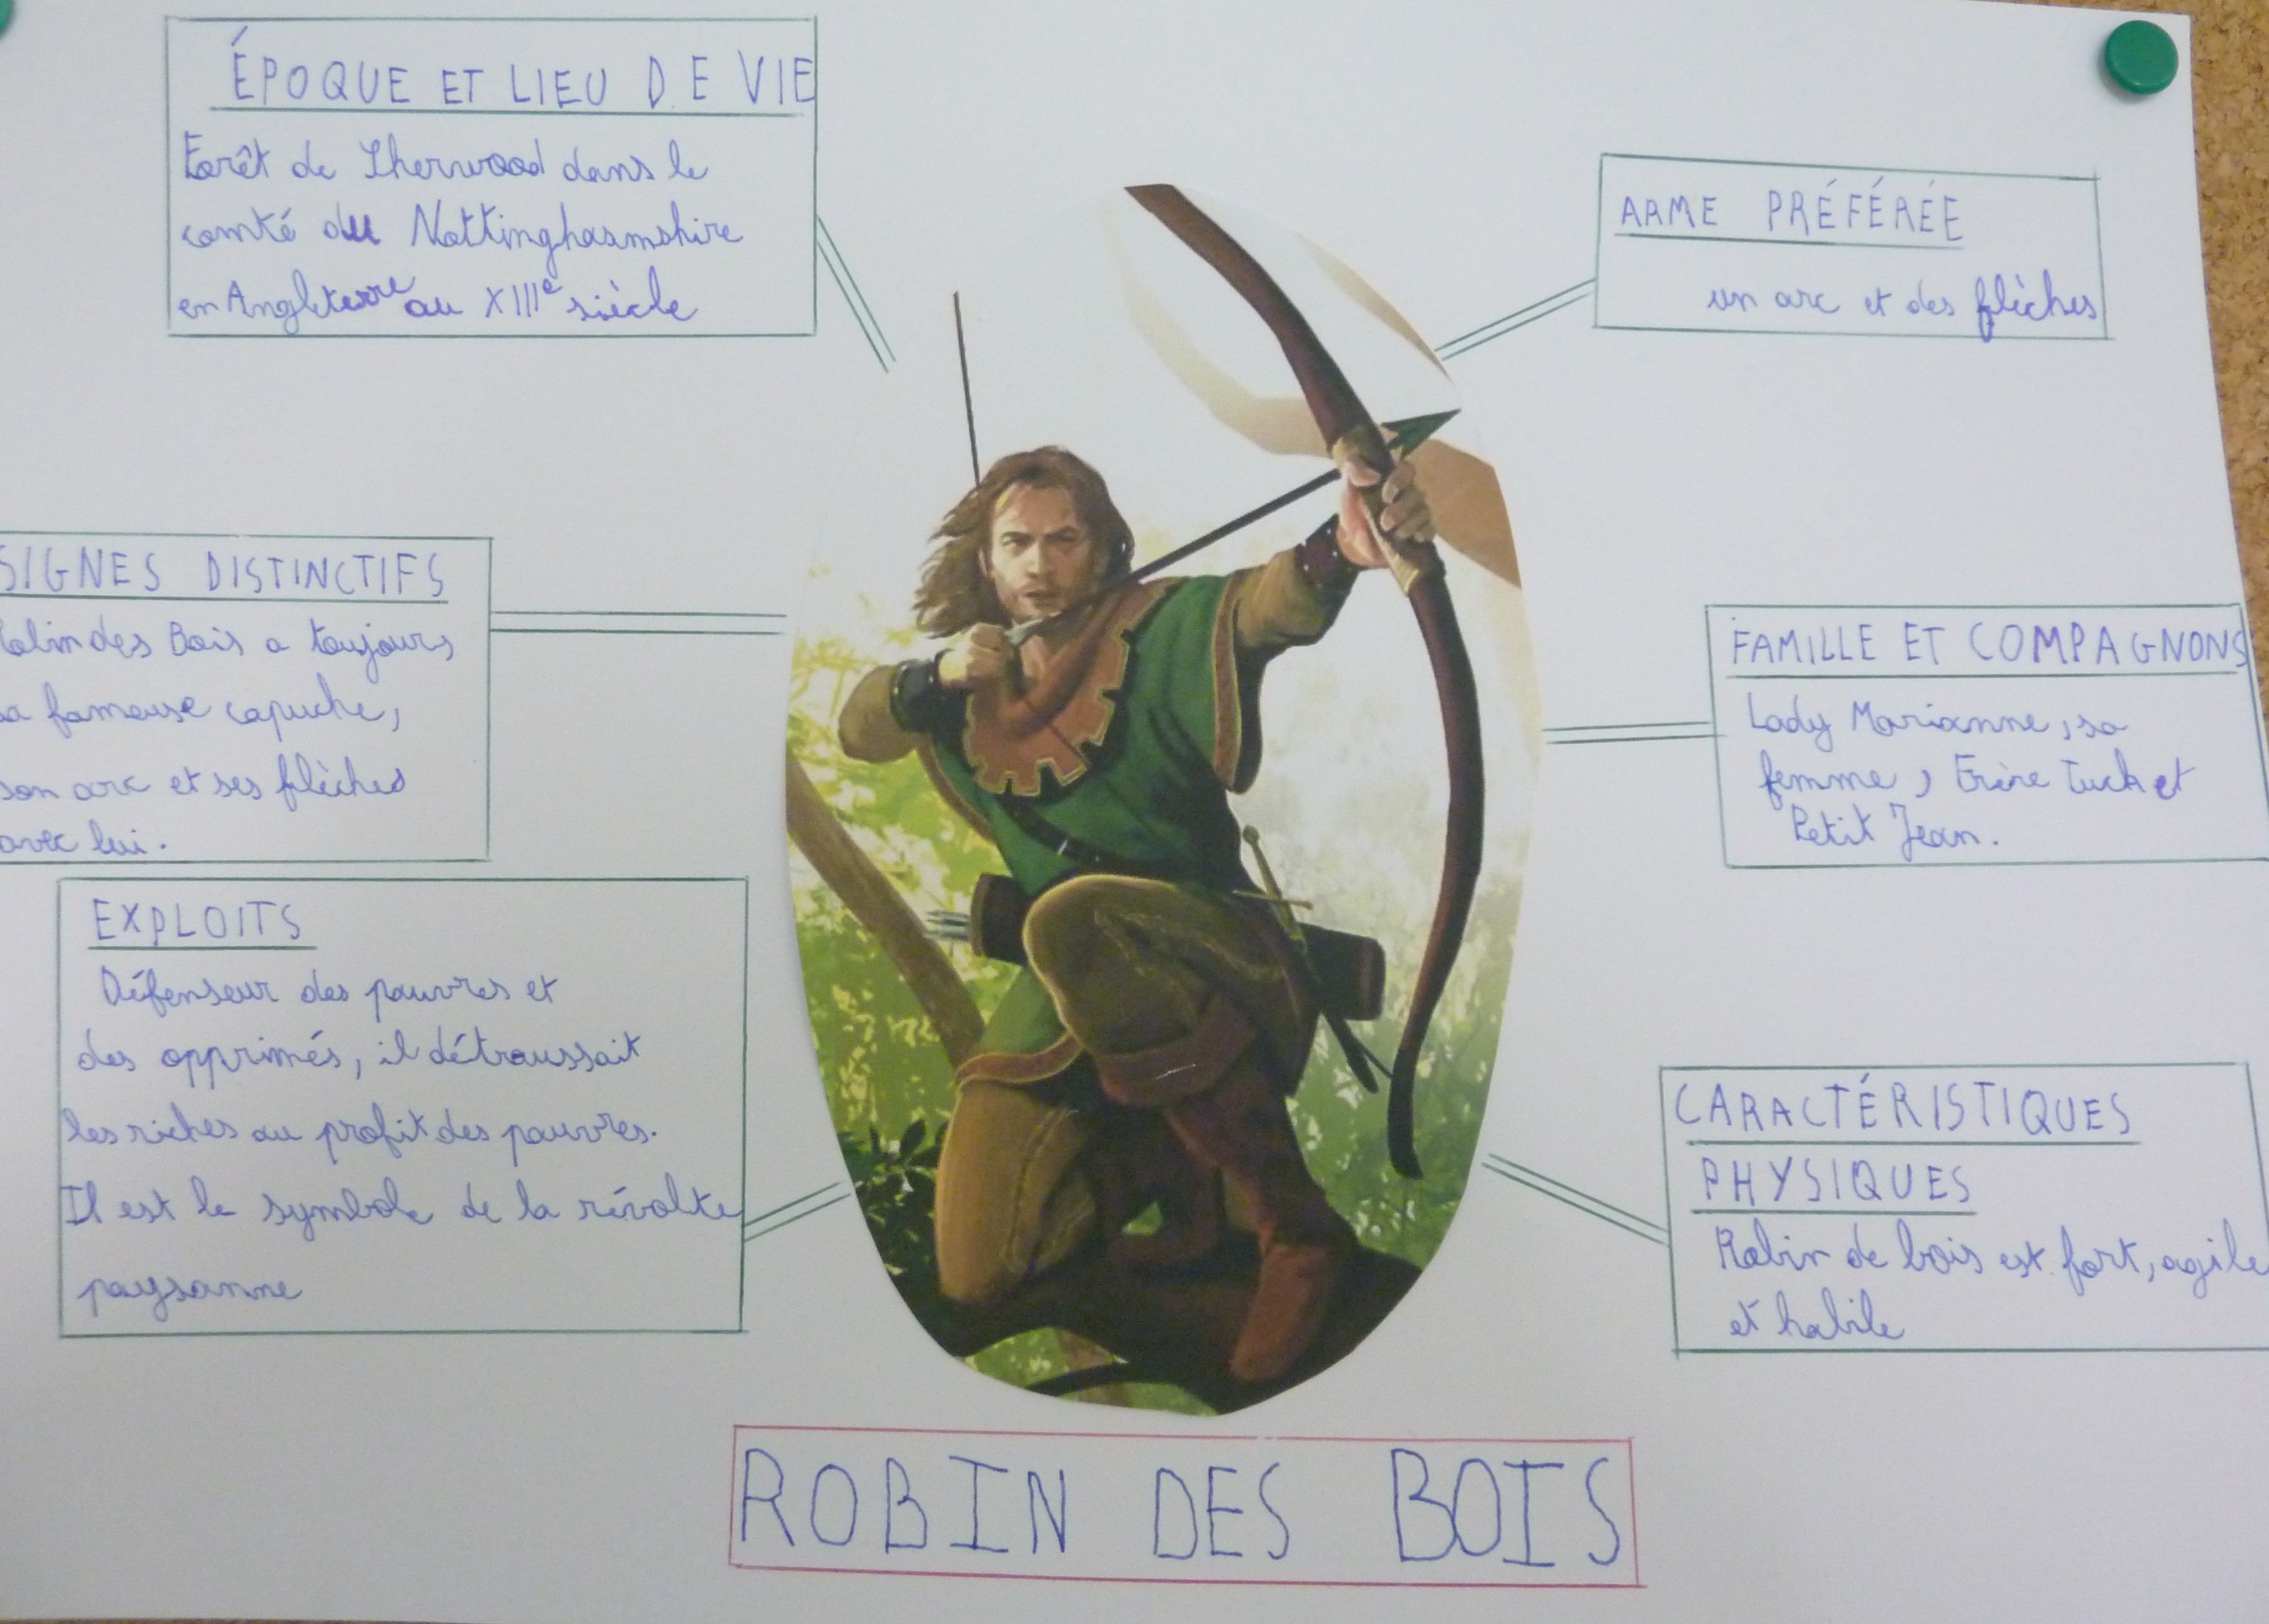 ÉPOQUE ET LIEU DE VIE
Forêt de Sherwood dans le
comté du Nottinghasmshire
en Angleterre au XIIIe siècle
ARME PRÉFÉRÉE
un arc et des flèches
SIGNES DISTINCTIFS
Robin des Bois a toujours
sa fameuse capuche,
son arc et ses flèches
avec lui.
FAMILLE ET COMPAGNONS
Lady Marianne, sa
femme, Frère Tuck et
Petit Jean.
EXPLOITS
Défenseur des pauvres et
des opprimés, il détroussait
les riches au profit des pauvres.
Il est le symbole de la révolte
paysanne
CARACTÉRISTIQUES
PHYSIQUES
Robin de bois est fort, agile
et habile
ROBIN DES BOIS